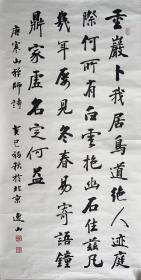 重巖卜我居鳥道絕人迹庭
際何所有白雲抱幽石住茲凡
幾年屢見冬春易寄語鐘
鼎家虛名定何益
唐寒山禪師詩 癸巳初秋於北京 山